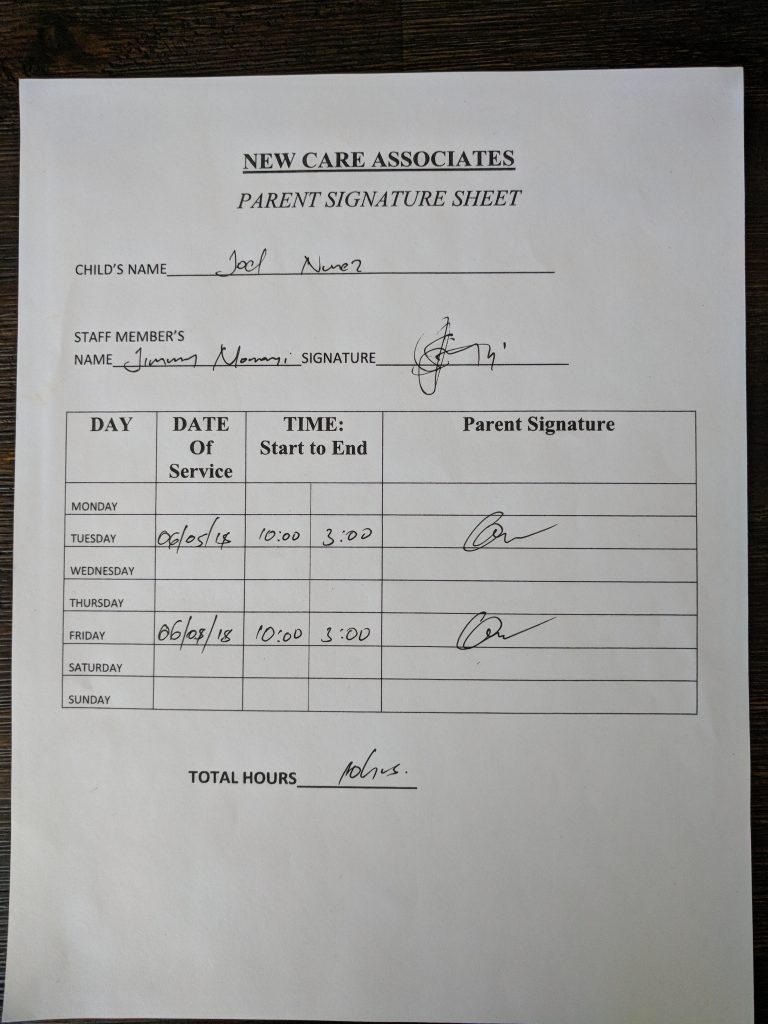 NEW CARE ASSOCIATES
PARENT SIGNATURE SHEET
CHILD'S NAME Joel Nunez
STAFF MEMBER'S
NAME Jimmy Momanyi SIGNATURE
DAY DATE Of Service TIME: Start to End Parent Signature
MONDAY
TUESDAY 06/05/18 10:00 3:00
WEDNESDAY
THURSDAY
FRIDAY 06/08/18 10:00 3:00
SATURDAY
SUNDAY
TOTAL HOURS 10hrs.